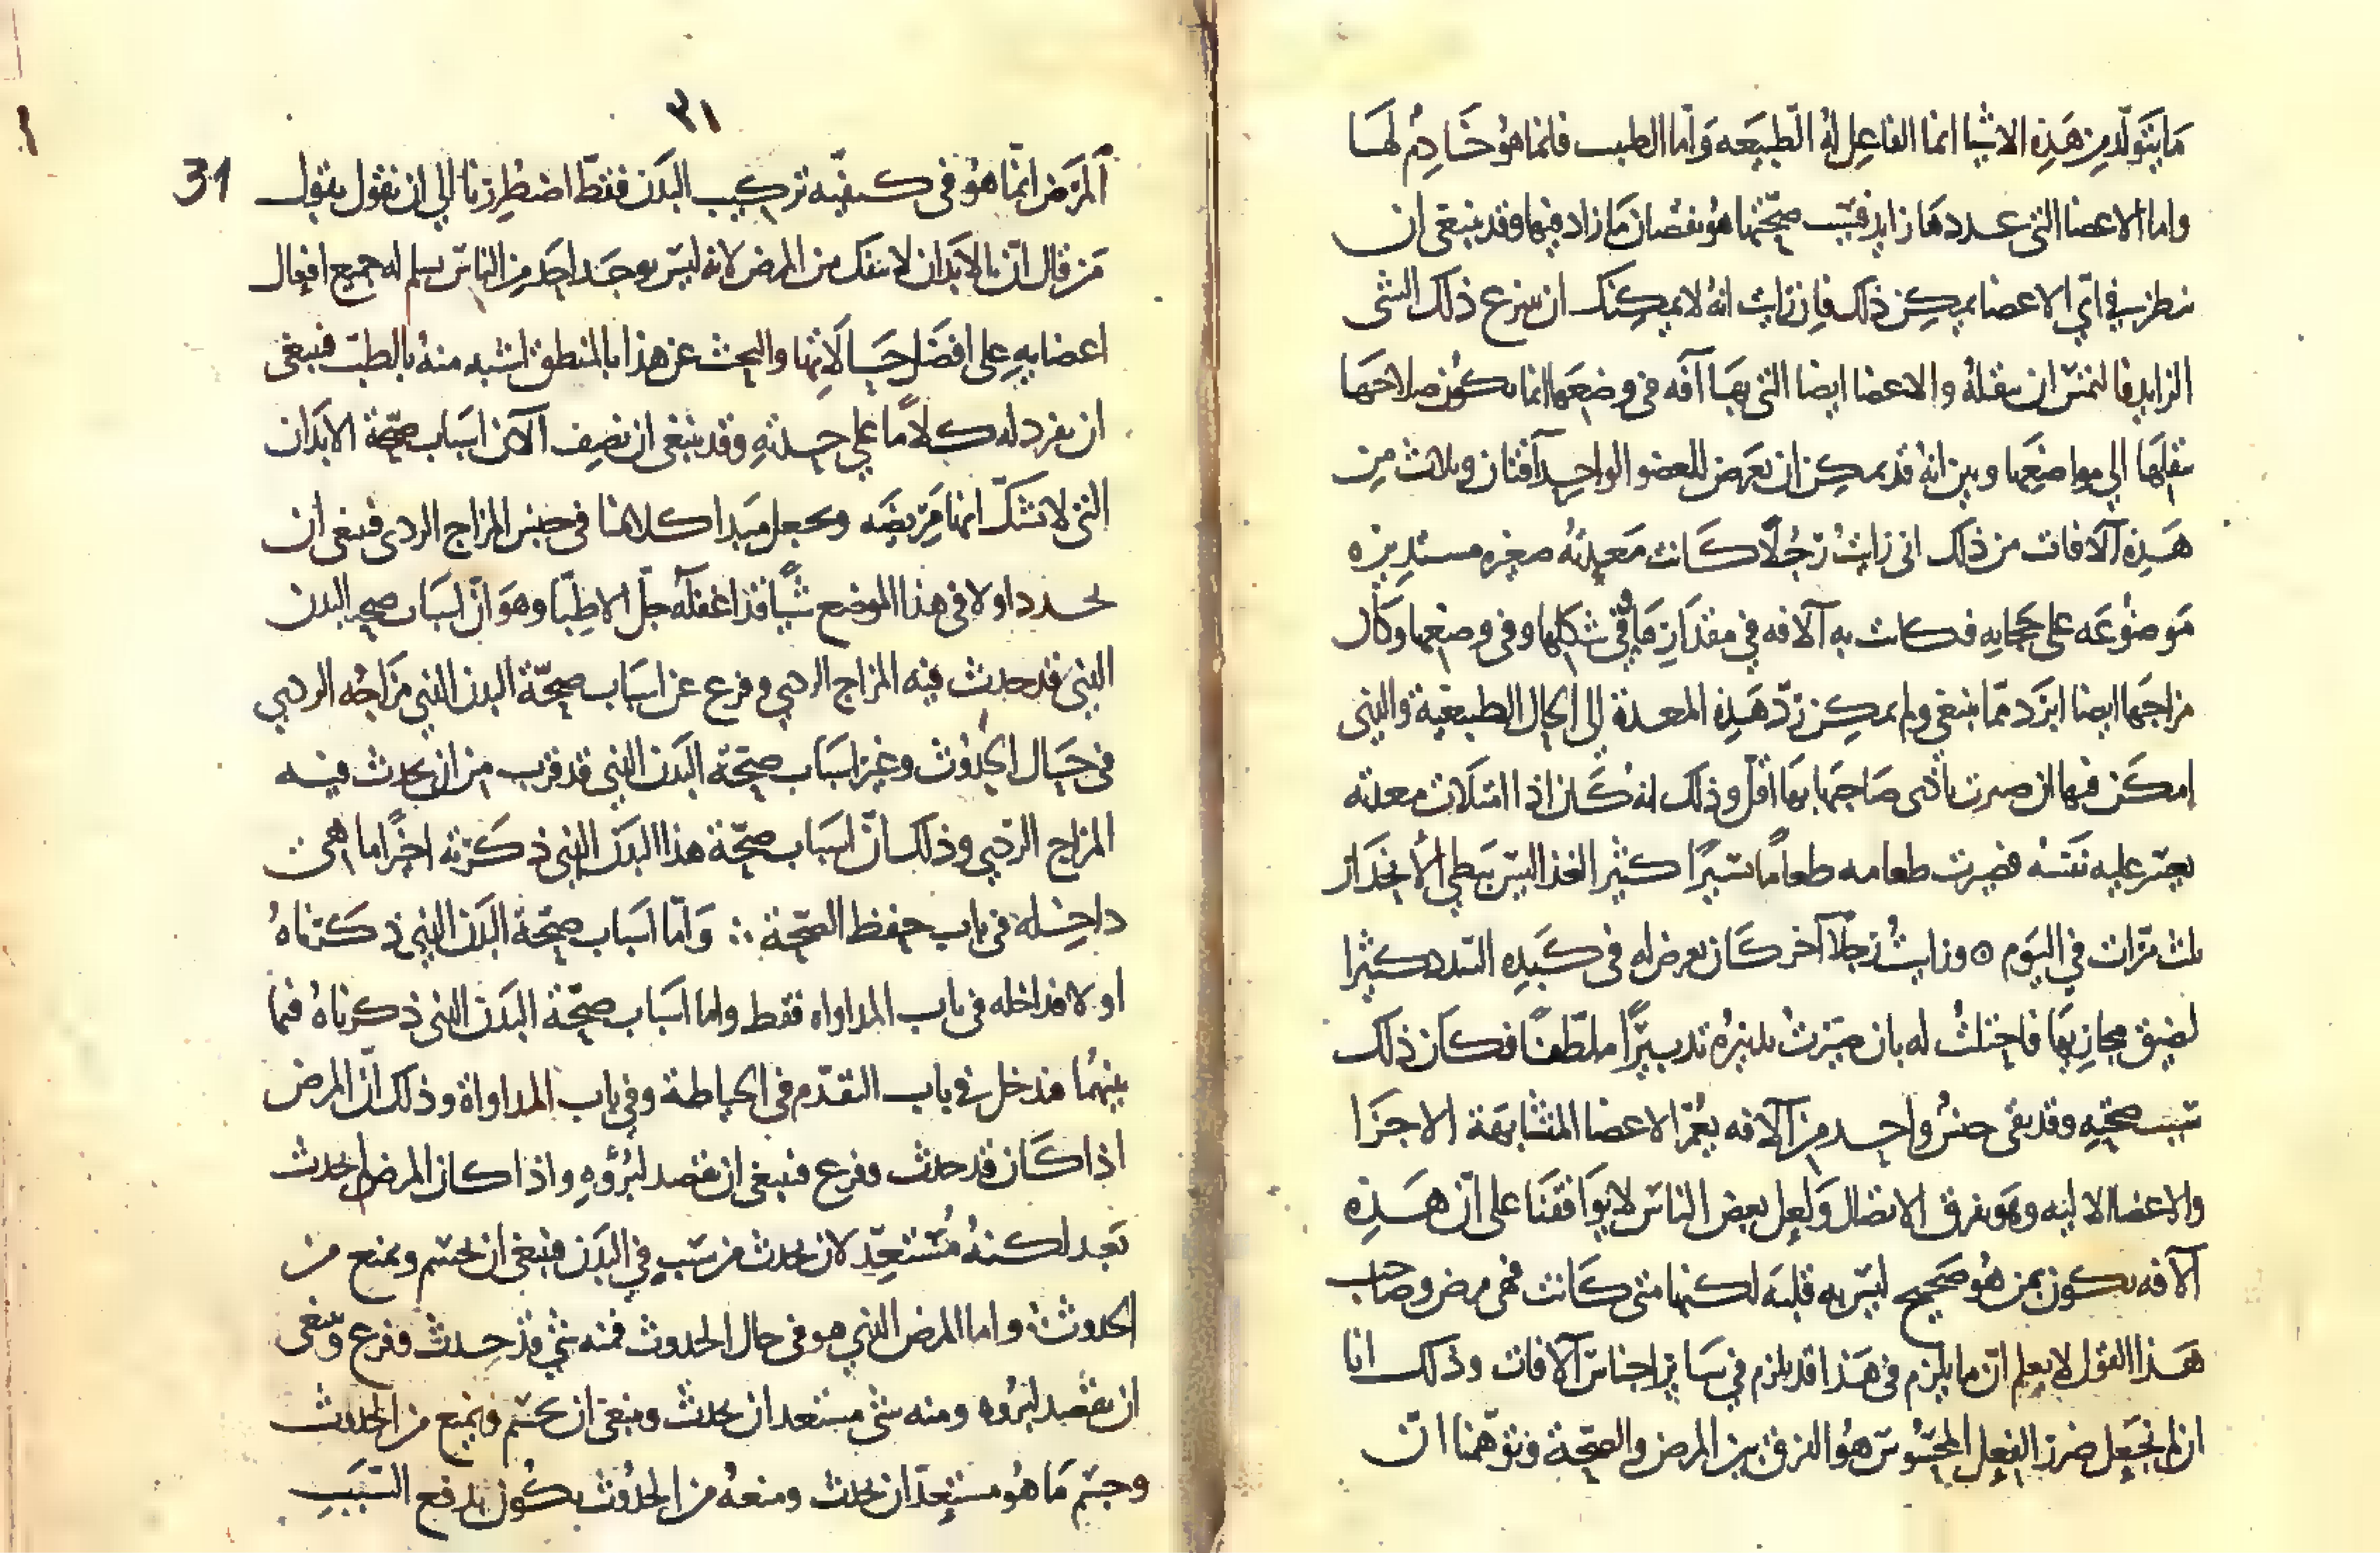 ما يتولّد من هذه الاشيا انما الفاعل له الطبيعه وأما الطبيب فانما هو خادم لها
واما الاعضا التى عددها زايد فسبب صحّتها هو نقصان ما زاد فيها وقد ينبغى ان
ينظر في اىّ الاعضا يمكن ذلك فان رايت انه لا يمكنك ان تنزع ذلك الشى
الزايد فالتمس ان تنقله والاعضا ايضا التى بها آفه فى وضعها انما يكون صلاحها
بنقلها الي مواضعها وبين انه قد يمكن ان يعرض للعضو الواحد آفتان وثلاث من
هذه الآفات من ذلك انى رايتُ رجُلًا كانت معدته صغيره مستديره
موضوعه على حجابه فكانت به الآفه في مقدارها وفى شكلها وفى وضعها وكان
مزاجها ايضا ابرد مما ينبغى ولم يمكن ردّ هذه المعدة الى الحال الطبيعية والذى
امكن فيها ان صيرت تاذى صاحبها بها اقل وذلك انه كان اذا امتلات معدته
يعسر عليه نفسه فصيرت طعامه طعامًا يسيرًا كثير الغذا ليس ببطي الانحدار
ثلث مرّات في اليوم ۞ ورايتُ رجلًا آخر كان يعرض له فى كبده السدد كثيرا
لضيق مجاريها فاحتلتُ له بان صيّرتُ تدبيره تدبيرًا ملطّفًا فكان ذلك
سبب صحّته وقد بقى جنسٌ واحد من الآفه يعُمّ الاعضا المتشابهة الاجزا
والاعضا الاليه وهو تفرق الاتصال ولعل بعض الناس لا يوافقنا على انّ هذه
الآفه تكون بمن هو صحيح ليس به قلبَه لكنها متى كانت فهى مرض وصاحب
هذا القول لا يعلم انّ ما يلزم فى هذا قد يلزم في ساير اجناس الآفات وذلك انا
ان لم نجعل ضرر الفعل المحسُوس هو الفرق بين المرض والصحّة وتوهّمنا انّ
٣١
31
المرض انّما هو فى كيفيّه تركيب البدن فقط اضطررنا الي ان نقول بقول
من قال انّ الابدان لا تنفك من المرض لانه ليس يوجد احد من الناس يسلم له جميع افعال
اعضايه على افضل حالاتها والبحث عن هذا بالمنطق اشبه منه بالطبّ فينبغى
ان نفرد له كلامًا على حدته وقد ينبغى ان نصف الآن اسباب صحّة الابدان
التى لا نشكّ انها مريضه ونجعل مبدا كلامنا فى جنس المزاج الردى فينبغى ان
نحدد اولا فى هذا الموضع شيًا قد اغفله جلّ الاطبّا وهو انّ اسباب صحه البدن
الذى قد حدث فيه المزاج الردي وفرغ غير اسباب صحّة البدن الذي مزاجُه الردي
فى حال الحدُوث وغير اسباب صحّة البدن الذي قد قرب من ان يحدث فيه
المزاج الردّي وذلك انّ اسباب صحّة هذا البدن الذي ذكرته اخرًا انما هى
داخله فى باب حفظ الصّحّة ∴ وأمّا اسباب صحّة البدن الذي ذكرناهُ
اولا فداخله فى باب المداواه فقط واما اسباب صحّة البدن الذى ذكرناهُ فيما
بينهُما فتدخل فى باب التقدّم فى الحياطة وفي باب المداواة وذلك انّ المرض
اذا كان قد حدث وفرغ فينبغى ان نقصد لبُرؤه واذا كان المرض لم يحدث
بعد لكنهُ مُستعِدّ لان يحدث من سبب في البدن فينبغى ان يحسم ويمنع من
الحدوث ∴ واما المرض الذي هو فى حال الحدوث فمنه شي قد حدث وفرغ وينبغى
ان نقصد لبرُوه ومنه شى مستعد ان يحدث وينبغى ان يحسم ويمنع من الحدوث
وحسم ما هو مستعِدّ ان يحدث ومنعهُ من الحدُوث يكُون بدفع السّبب